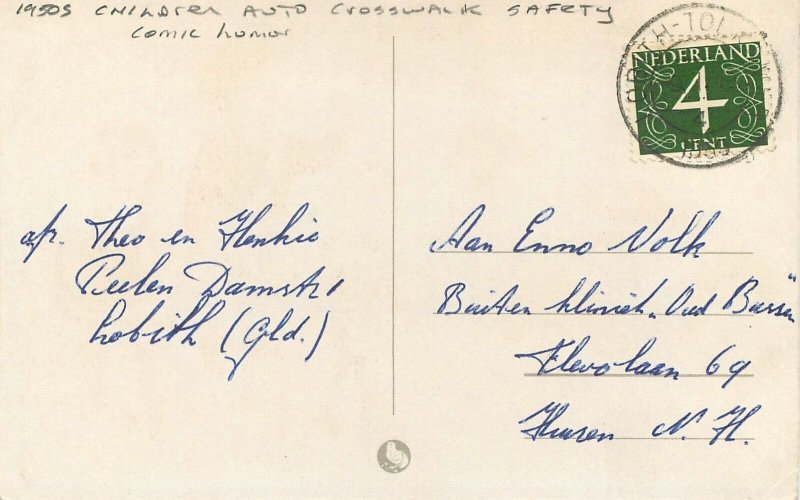 1950s CHILDREN AUTO CROSSWALK SAFETY
comic humor
NEDERLAND
4
CENT
afz. Theo en Henkie
Peelen Damstr.
Lobith (Gld.)
Aan Enno Volk
Buiten kliniek „Oud Bussem"
Flevolaan 69
Huizen N. H.